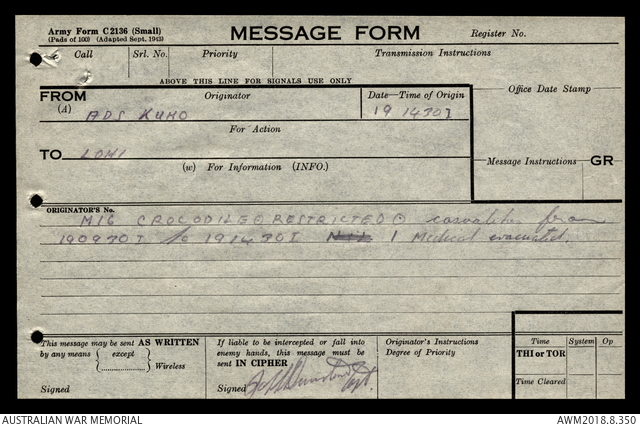 Army Form C2136 (Small)
(Pads of 100) (Adapted Sept. 1943)
MESSAGE FORM
Register No.
Call Srl. No. Priority Transmission Instructions
ABOVE THIS LINE FOR SIGNALS USE ONLY
FROM Originator Date—Time of Origin
(A) ADS KUHO 191430I
Office Date Stamp
For Action
TO LOMI
(w) For Information (INFO.)
Message Instructions GR
ORIGINATOR'S No.
M16 CROCODILE ⊙ RESTRICTED ⊙ casualties from
190930I to 191430I 1 Medical evacuated.
This message may be sent AS WRITTEN
by any means { except } Wireless
Signed
If liable to be intercepted or fall into
enemy hands, this message must be
sent IN CIPHER
Signed Capt.
Originator's Instructions
Degree of Priority
Time System Op
THI or TOR
Time Cleared
AUSTRALIAN WAR MEMORIAL AWM2018.8.350